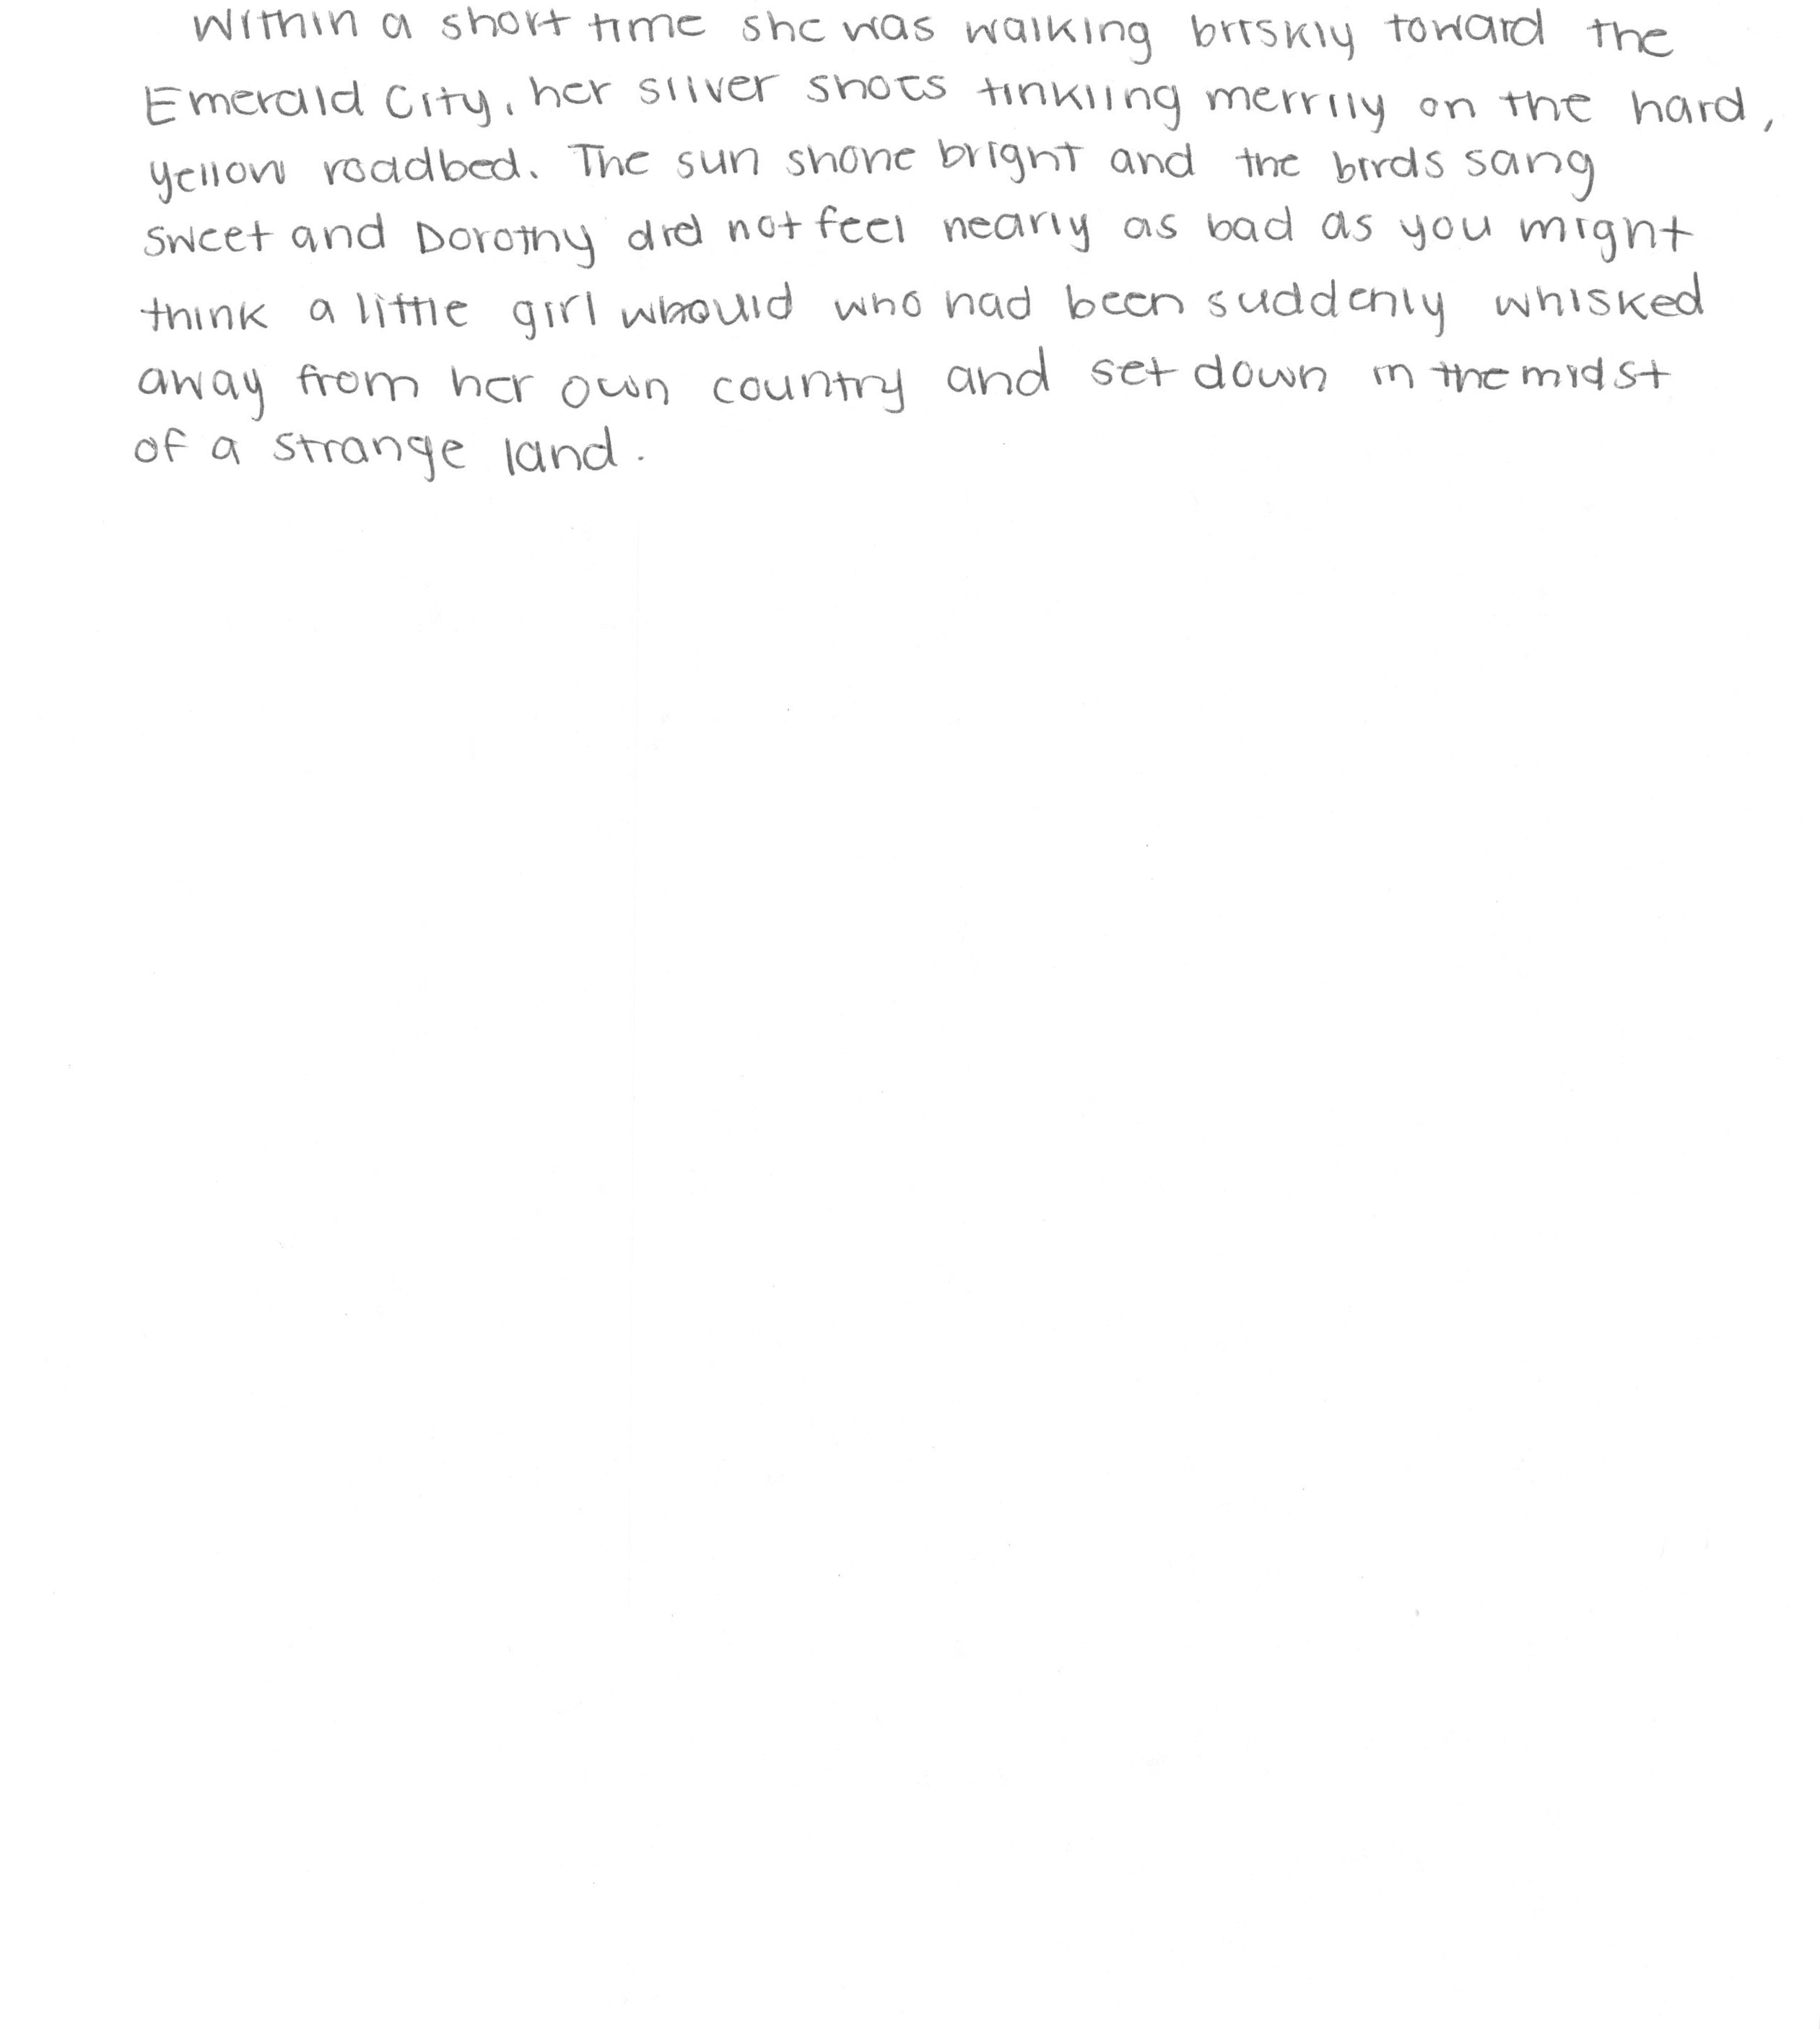 Within a short time she was walking briskly toward the
Emerald City, her silver shoes tinkling merrily on the hard,
yellow roadbed. The sun shone bright and the birds sang
sweet and Dorothy did not feel nearly as bad as you might
think a little girl whould who had been suddenly whisked
away from her own country and set down in the midst
of a strange land.